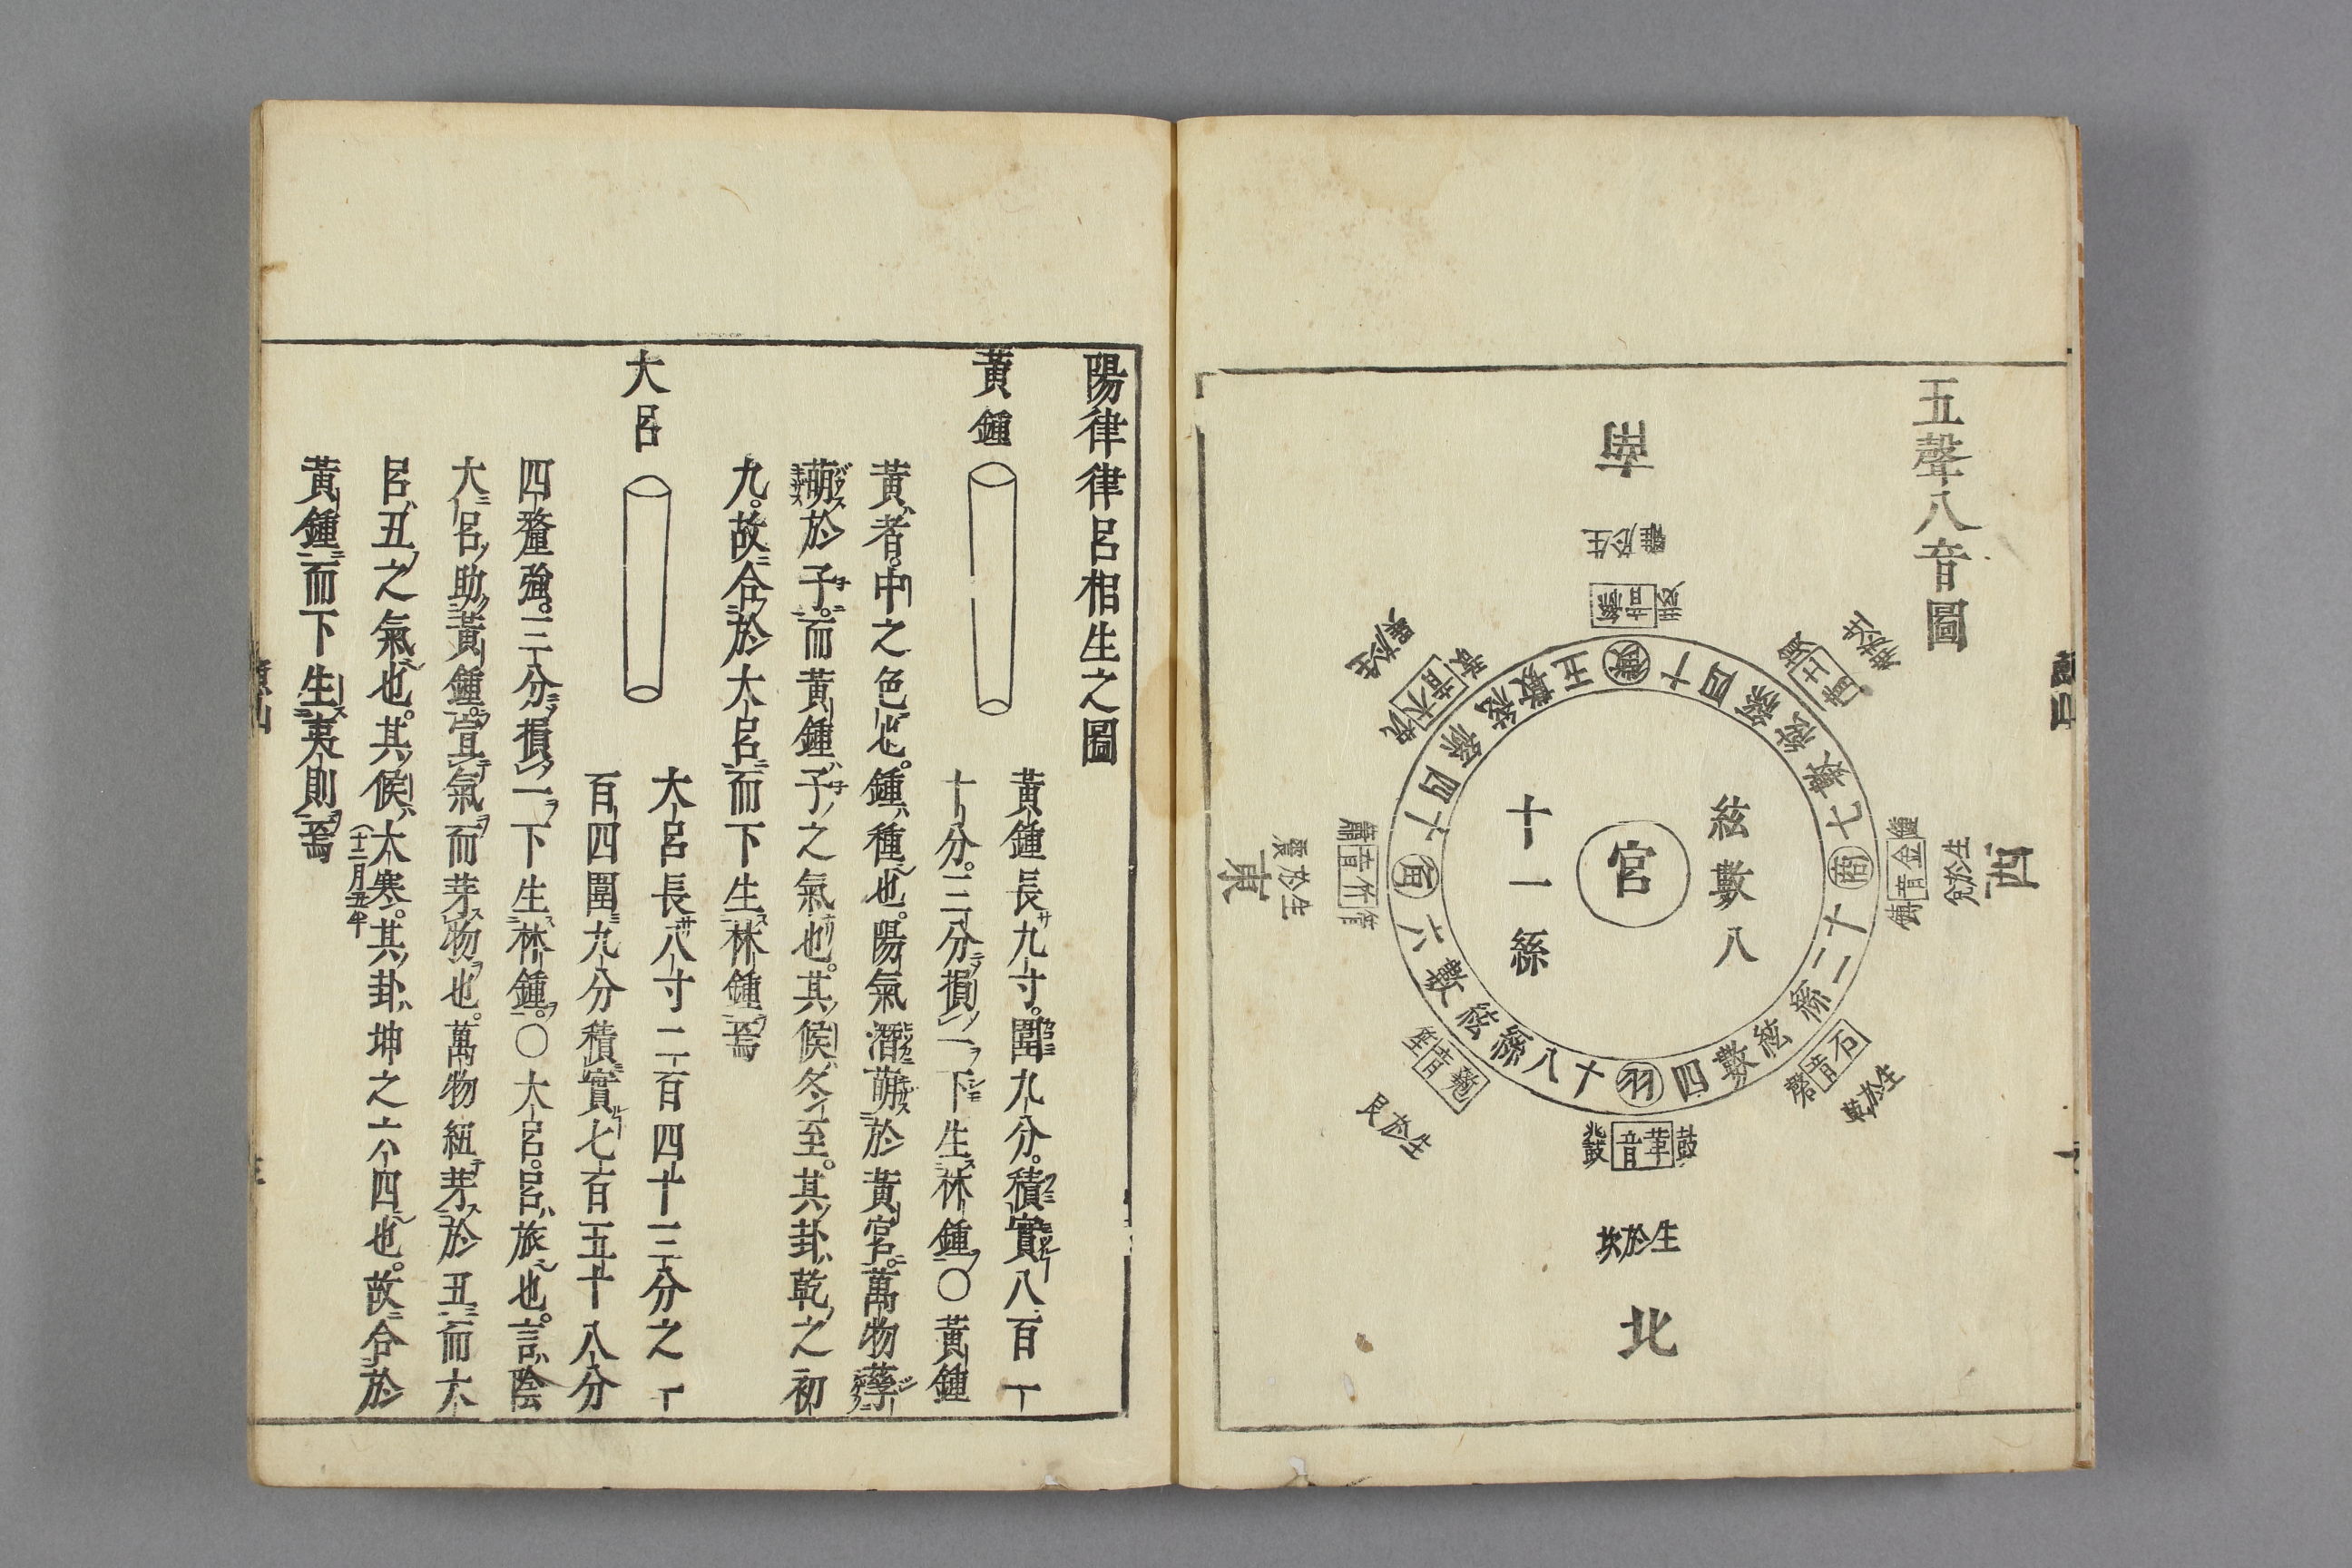 五聲八音圖
南
生於離
琴 絲音 瑟
西
生於兌
鐘 金音 鎛
生於乾
石音 磬
北
生於坎
鼓 革音
生於艮
匏音 笙
東
生於震
簫 竹音 管
生於巽
木音
土音
宮
絃數八
十一絲
徵 絃數五 十四絲
商 絃數七 十二絲
羽 絃數四 十八絲
角 絃數六 十四絲
陽律律呂相生之圖
黃鍾
黃鍾長九寸。圍九分。積實八百一
十分。三分損一下生林鍾○黃鍾
黃者。中之色也。鍾種也。陽氣潛萌於黃宮。萬物孳
萌於子。而黃鍾子之氣也。其候冬至。其卦乾之初
九。故合於大呂而下生林鍾焉
大呂
大呂長八寸二百四十三分之一
百四圍九分積實七百五十八分
四釐強。三分損一下生林鍾。○大呂。呂旅也。言陰
大呂助黃鍾。宣氣而芽物也。萬物紐芽於丑而大
呂丑之氣也。其候大寒。其卦坤之六四也。故合於
十二月
黃鍾而下生夷則焉